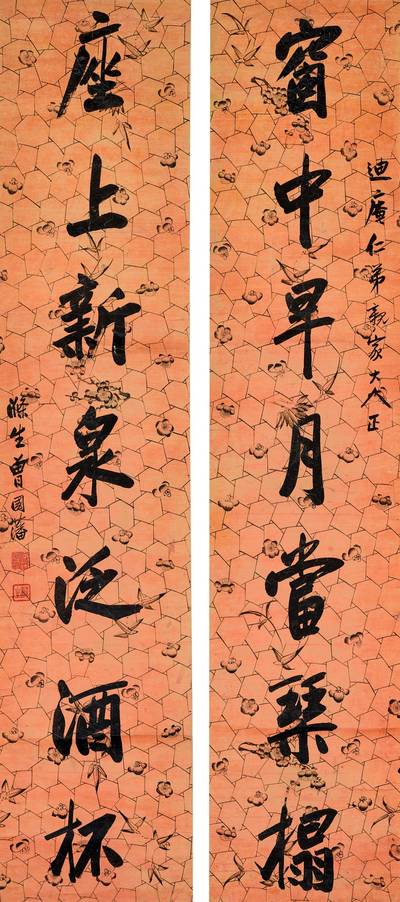 迪庵仁弟親家大人正
窗中早月當琴榻
座上新泉泛酒杯
滌生曾國藩